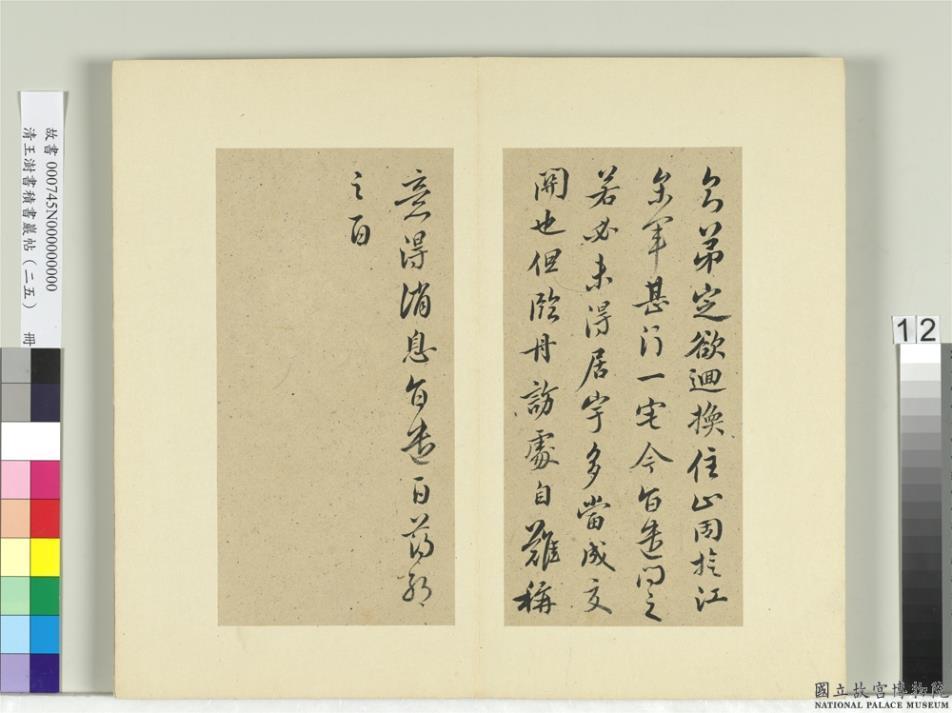 弟定欲迴換住止因於江
參軍甚行一宅今有遣問之
若必未得居宇多當成交
開也但臨舟訪處自難稱
意得消息旨遣百
之百
故書 000745N000000000
清王澍書積書巖帖(二五) 冊
12
國立故宮博物院
NATIONAL PALACE MUSEUM